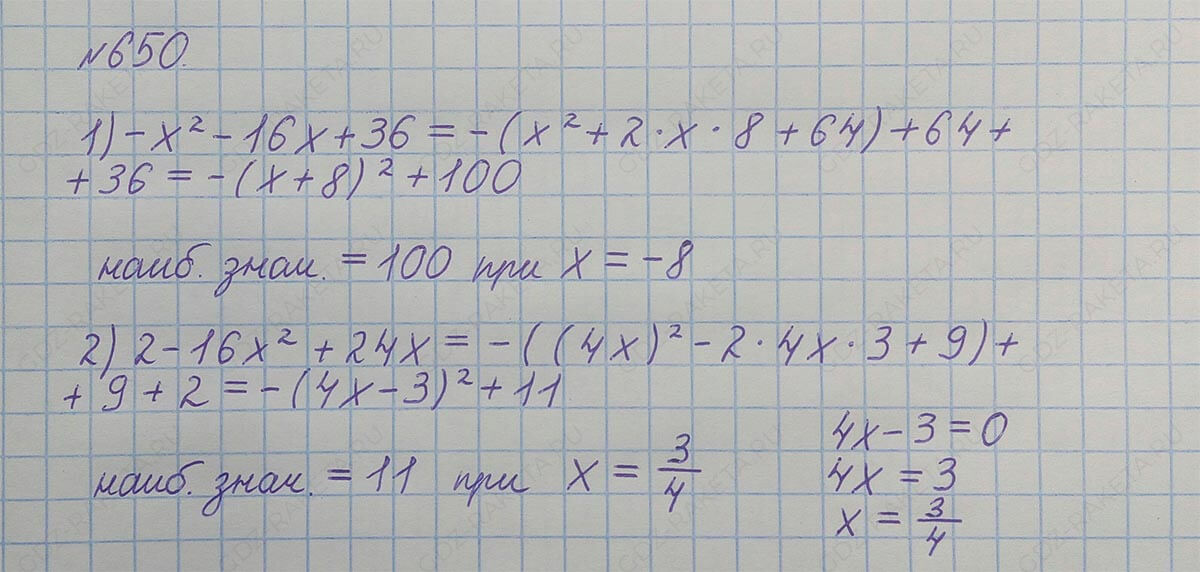 №650.
1) -x² - 16x + 36 = -(x² + 2·x·8 + 64) + 64 +
+ 36 = -(x + 8)² + 100
наиб. знач. = 100 при x = -8
2) 2 - 16x² + 24x = -((4x)² - 2·4x·3 + 9) +
+ 9 + 2 = -(4x - 3)² + 11
наиб. знач. = 11 при x = 3/4
4x - 3 = 0
4x = 3
x = 3/4
GDZ-RAKETA.RU